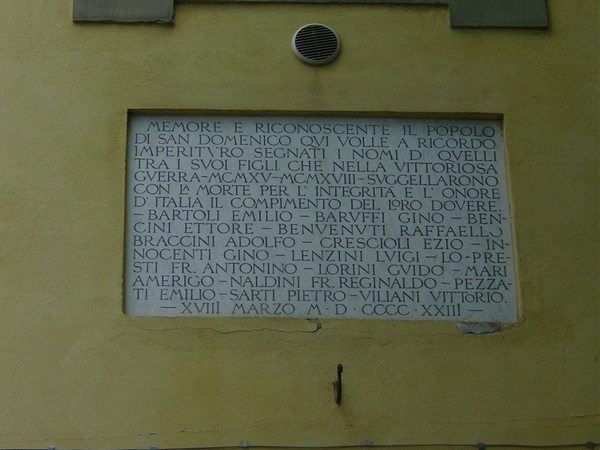 MEMORE E RICONOSCENTE IL POPOLO
DI SAN DOMENICO QVI VOLLE A RICORDO
IMPERITVRO SEGNATI I NOMI DI QVELLI
TRA I SVOI FIGLI CHE NELLA VITTORIOSA
GVERRA-MCMXV-MCMXVIII-SVGGELLARONO
CON LA MORTE PER L' INTEGRITÀ E L' ONORE
D' ITALIA IL COMPIMENTO DEL LORO DOVERE.
-BARTOLI EMILIO-BARVFFI GINO-BEN-
CINI ETTORE-BENVENVTI RAFFAELLO
BRACCINI ADOLFO-CRESCIOLI EZIO-IN-
NOCENTI GINO-LENZINI LVIGI-LO-PRE-
STI FR. ANTONINO-LORINI GVIDO-MARI
AMERIGO-NALDINI FR. REGINALDO-PEZZA-
TI EMILIO-SARTI PIETRO-VILIANI VITTORIO.
-XVIII MARZO M·D·CCCC·XXIII-